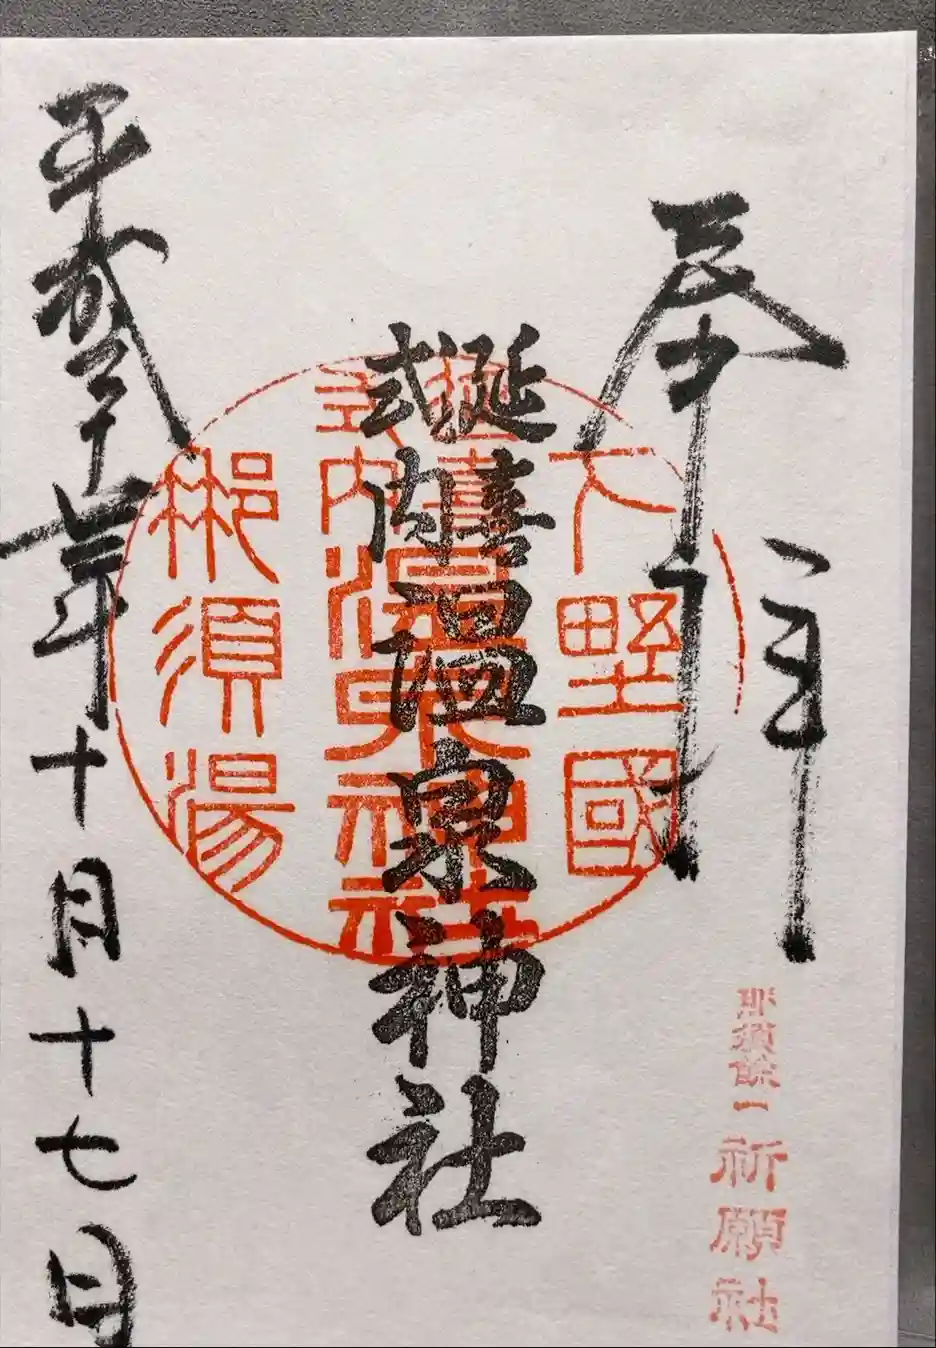 奉拝
那須餘一
祈願社
延喜
式内
温泉神社
下野國
延喜
式内
温泉神社
那須湯
平成三十年十月十七日